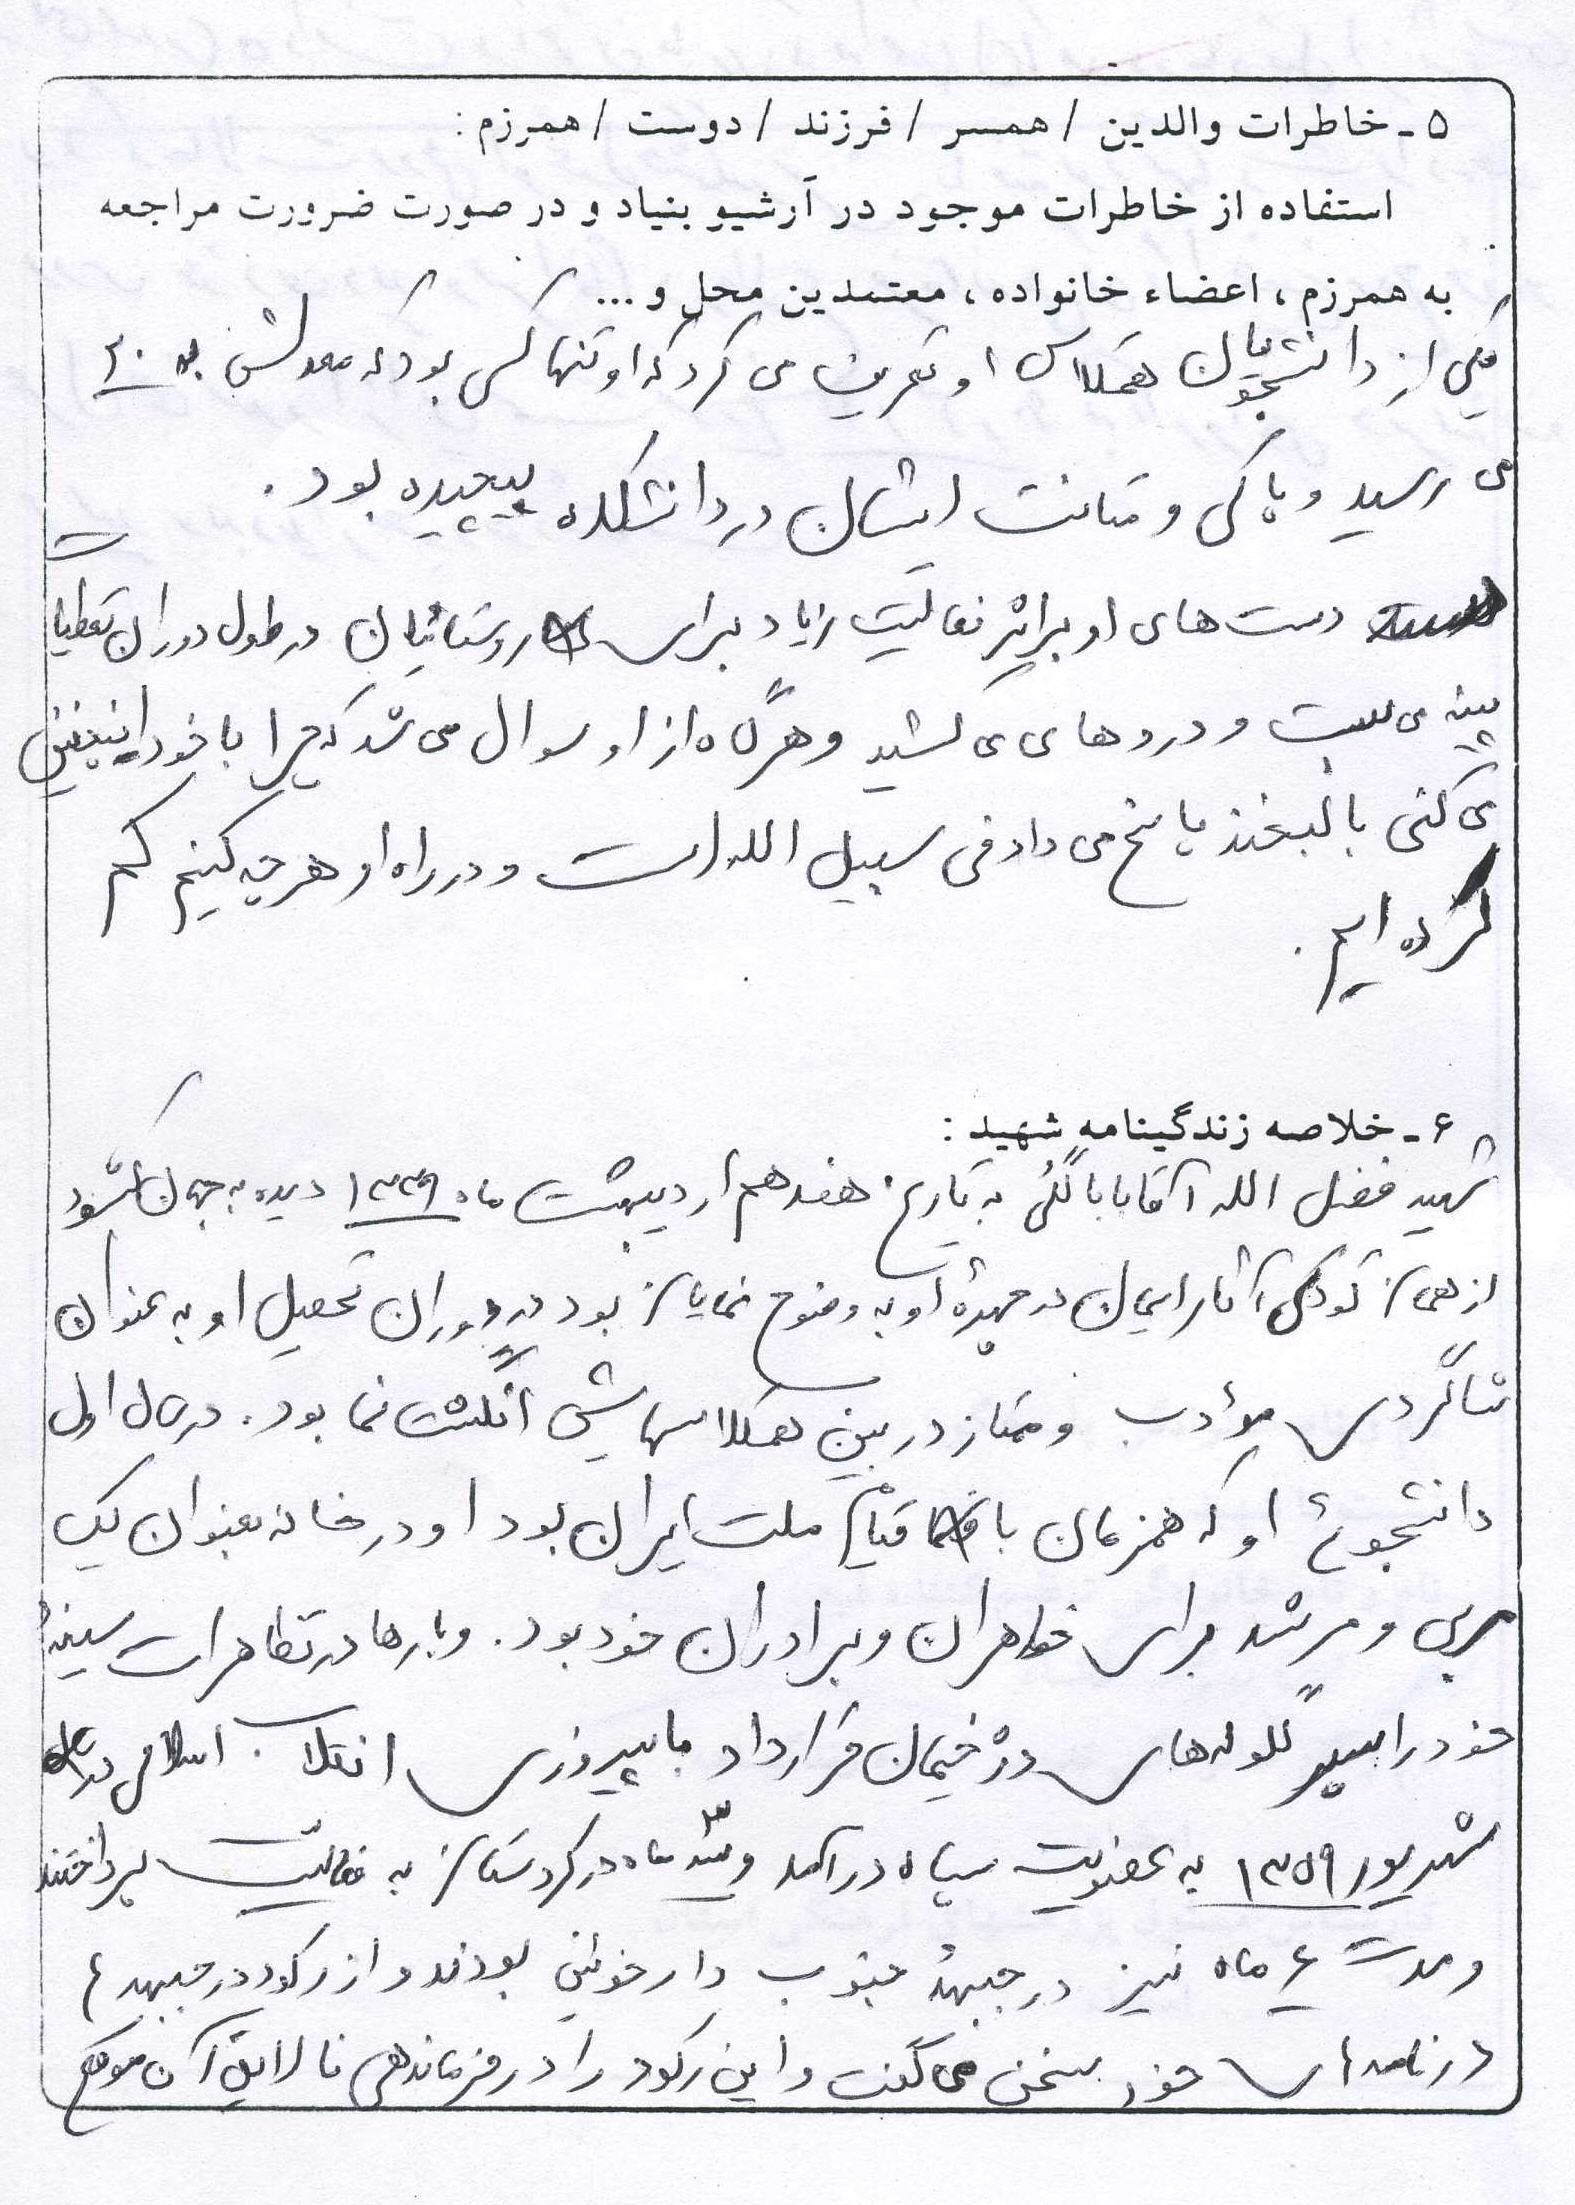 ۵ - خاطرات والدین / همسر / فرزند / دوست / همرزم :
استفاده از خاطرات موجود در آرشیو بنیاد و در صورت ضرورت مراجعه
به همرزم ، اعضاء خانواده ، معتمدین محل و ...
یکی از دانشجویان همکلاس او تعریف می کرد که او تنها کسی بود که معدلش به ۲۰
می رسید و پاکی و متانت ایشان در دانشکده پیچیده بود .
دست های او بر اثر فعالیت زیاد برای روستائیان در طول دوران تعطیلات
پینه می بست و دردها می کشید و هرگاه از او سوال می شد که چرا با خود اینچنین
می کنی با لبخند پاسخ می داد فی سبیل الله است و در راه او هر چه کنیم کم
کرده ایم .
۶ - خلاصه زندگینامه شهید :
شهید فضل الله آقابابا گلی به تاریخ هفدهم اردیبهشت ماه ۱۳۳۹ دیده به جهان گشود
از همان کودکی آثار ایمان در چهره او به وضوح نمایان بود در دوران تحصیل او به عنوان
شاگردی مؤدب و ممتاز در بین همکلاسهایش انگشت نما بود . در سال اول
دانشجوئی او که همزمان با قیام ملت ایران بود او در خانه بعنوان یک
مربی و مرشد برای خواهران و برادران خود بود . و بارها در تظاهرات سینه
خود را سپر گلوله های دژخیمان قرار داد با پیروزی انقلاب اسلامی در
شهریور ۱۳۵۹ به عضویت سپاه درآمد و سه ماه در کردستان به فعالیت پرداختند
و مدت ۶ ماه نیز در جبهۀ جنوب دارخوئین بودند و از رکود در جبهه ها
در نامه های خود سخن می گفت و این رکود را در فرماندهی نالایق آن موقع